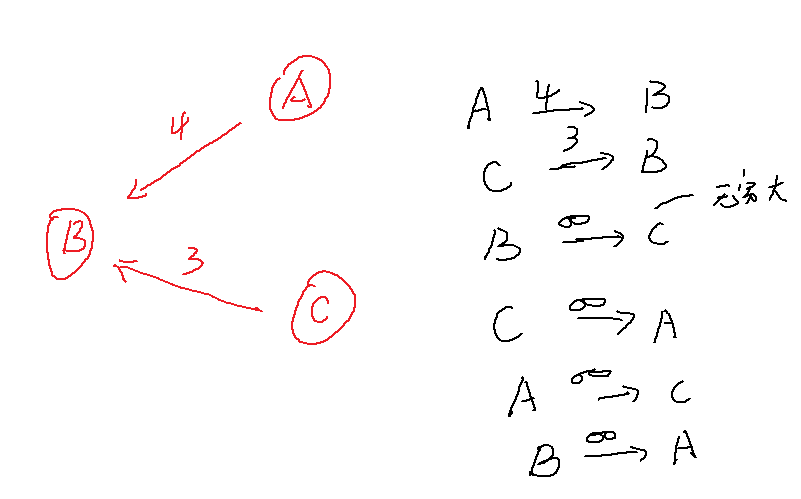 A
4
B
3
C
A 4 B
C 3 B
B ∞ C 无穷大
C ∞ A
A ∞ C
B ∞ A